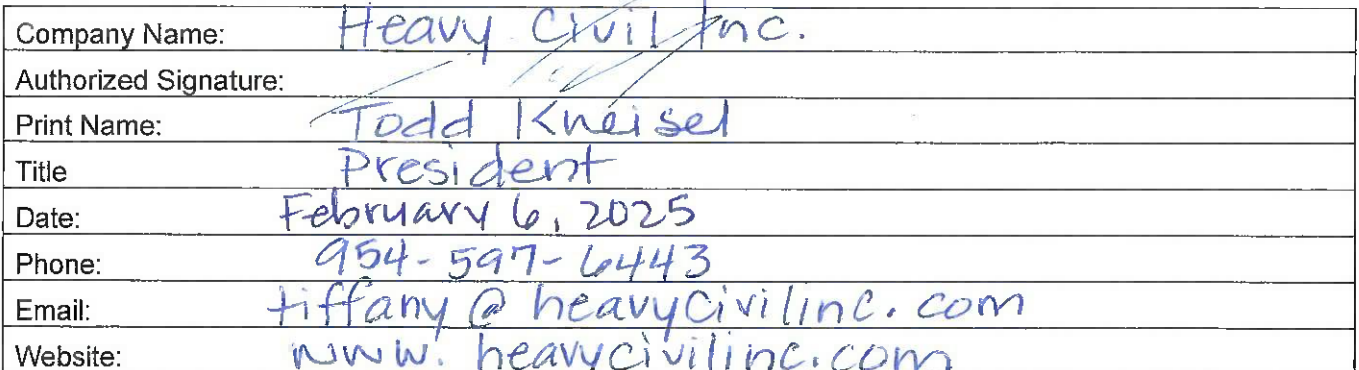 Company Name: Heavy Civil Inc.
Authorized Signature:
Print Name: Todd Kneisel
Title President
Date: February 6, 2025
Phone: 954-597-6443
Email: tiffany@heavycivilinc.com
Website: www.heavycivilinc.com